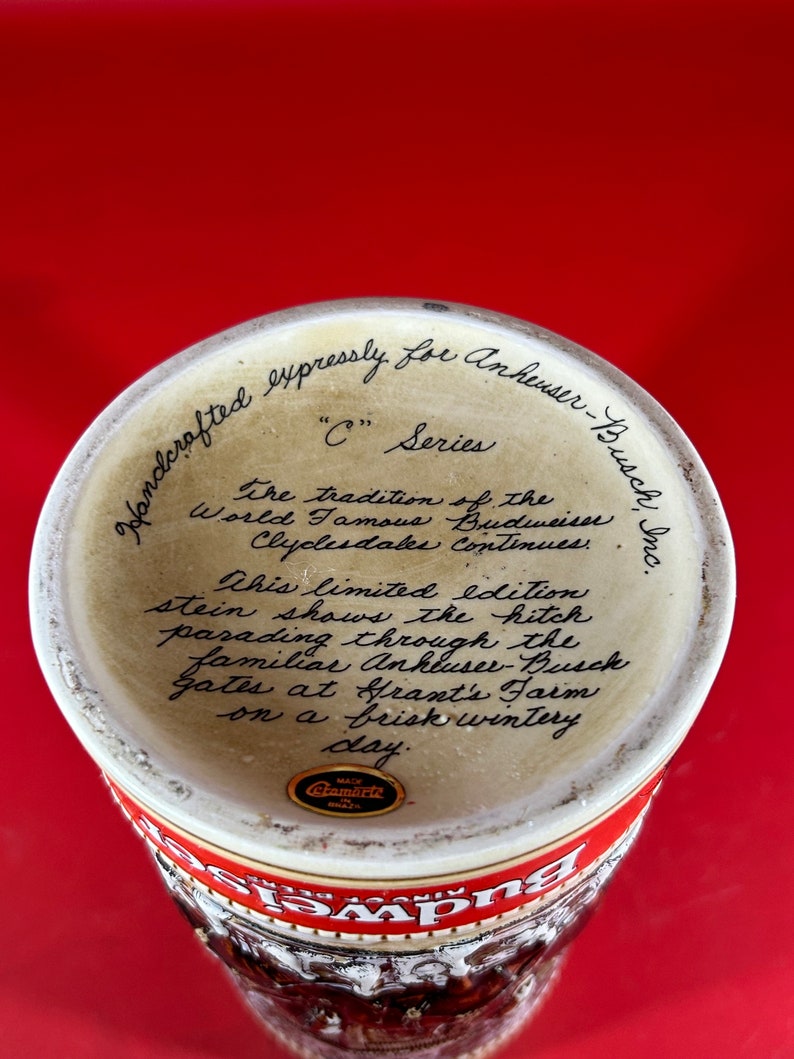 Handcrafted expressly for Anheuser-Busch, Inc.
"C" Series
The tradition of the
World Famous Budweiser
Clydesdales continues.
This limited edition
stein shows the hitch
parading through the
familiar Anheuser-Busch
gates at Grant's Farm
on a brisk wintery
day.
MADE
Ceramarte
IN
BRAZIL
KING OF BEERS
Budweiser